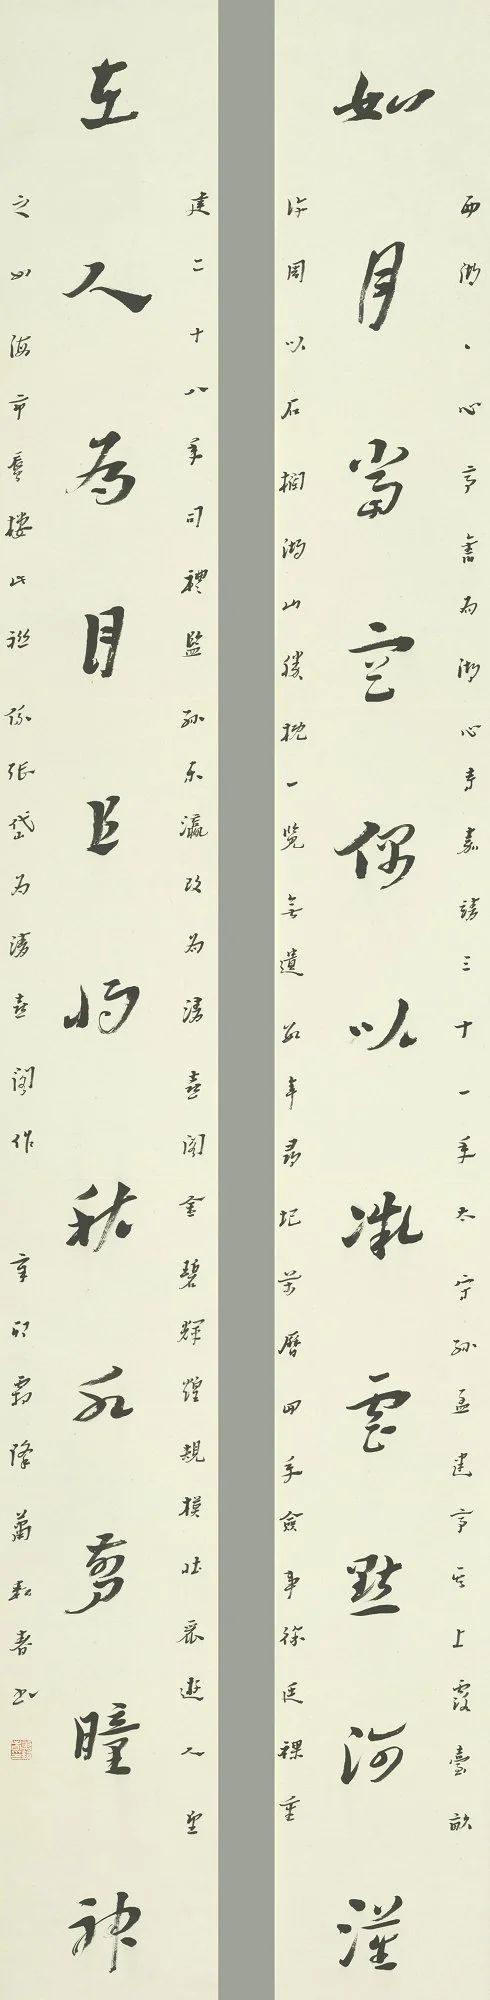 如月當空偶以微雲點河漢
西湖〻心亭舊為湖心寺嘉靖三十一年太守孫孟建亭其上露臺畝
許周以石欄湖山勝概一覽無遺數年尋圮萬曆四年僉事徐廷祼重
在人為目且將秋水剪瞳神
建二十八年司禮監孫東瀛改為清喜閣金碧輝煌規模壯麗遊人望
之如海市蜃樓此聯係張岱為清喜閣作 辛卯霜降蕭